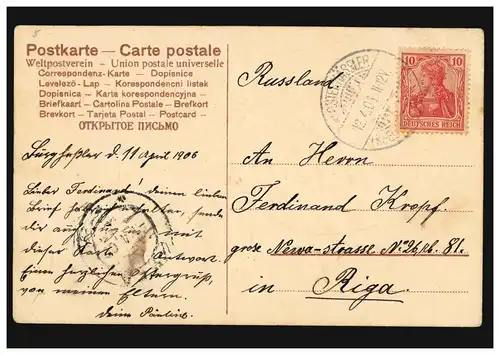 Postkarte — Carte postale
Weltpostverein - Union postale universelle
Correspondenz-Karte - Dopisnice
Levelező-Lap - Korespondencni listek
Dopisnica - Karta korespondencyjna -
Briefkaart - Cartolina Postale - Brefkort
Brevkort - Tarjeta Postal - Postcard -
ОТКРЫТОЕ ПИСЬМО
d. 11 April 1906
Lieber Ferdinand! deinen lieben
Brief erhalten, sende
dir mit
dieser Karte Antwort.
Einen herzlichen Ostergruß,
von meinen Eltern.
deine Pauline.
Russland
10 10
DEUTSCHES REICH
An Herrn
Ferdinand Kropf.
grose Newa-strasse No 26, 81.
in Riga.